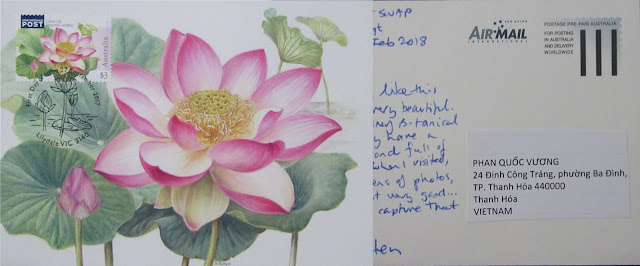 POST
Australia
$3
First Day
2017
Lilydale VIC 3140
SWAP
Feb 2018
like this
very beautiful.
Botanical
have a
and full of
when I visited,
of photos,
very good...
capture that
PAR AVION
AIR MAIL
INTERNATIONAL
POSTAGE PRE-PAID AUSTRALIA
FOR POSTING
IN AUSTRALIA
AND DELIVERY
WORLDWIDE
PHAN QUỐC VƯƠNG
24 Đinh Công Tráng, phường Ba Đình,
TP. Thanh Hóa 440000
Thanh Hóa
VIETNAM